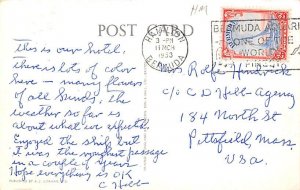 HM
POST CARD
HAMILTON
3 - PM
11 MCH
1953
BERMUDA
BERMUDA
ONE OF THE
WORLD'S
this is our hotel,
there is lots of color
here — many flowers
of all kinds, the
weather so far is
about what we expected.
Enjoyed the ship but
it was the roughest passage
in a couple of years.
Hope everything is OK
C Hill
Miss Rolfe Hendrick
c/o C D Hill Agency
184 North St
Pittsfield, Mass
USA.